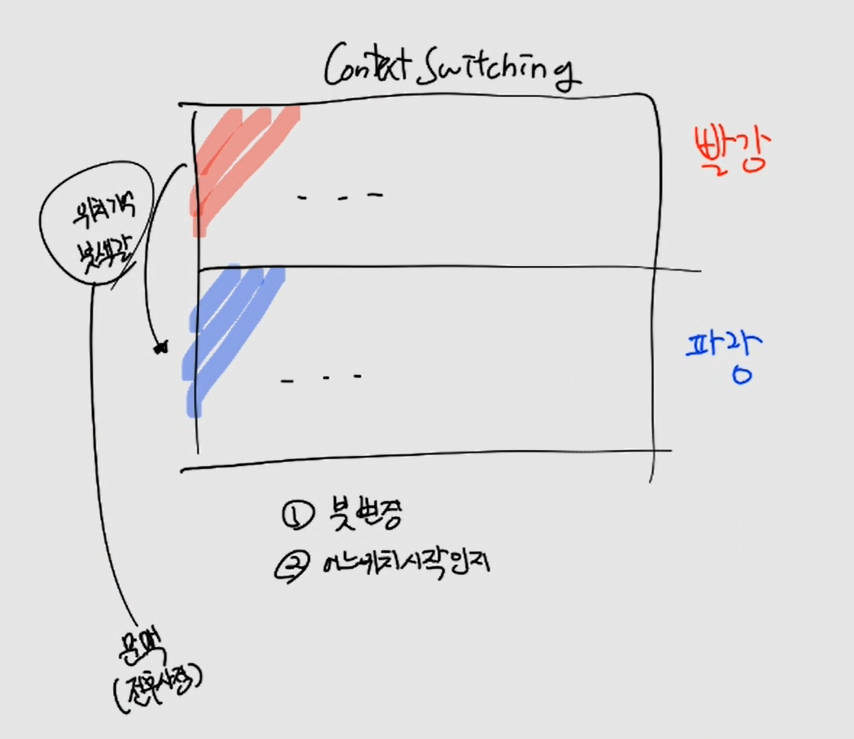 Context Switching
빨강
위치기억
붓색깔
파랑
① 붓변경
② 어느위치시작인지
문맥
(전후사정)